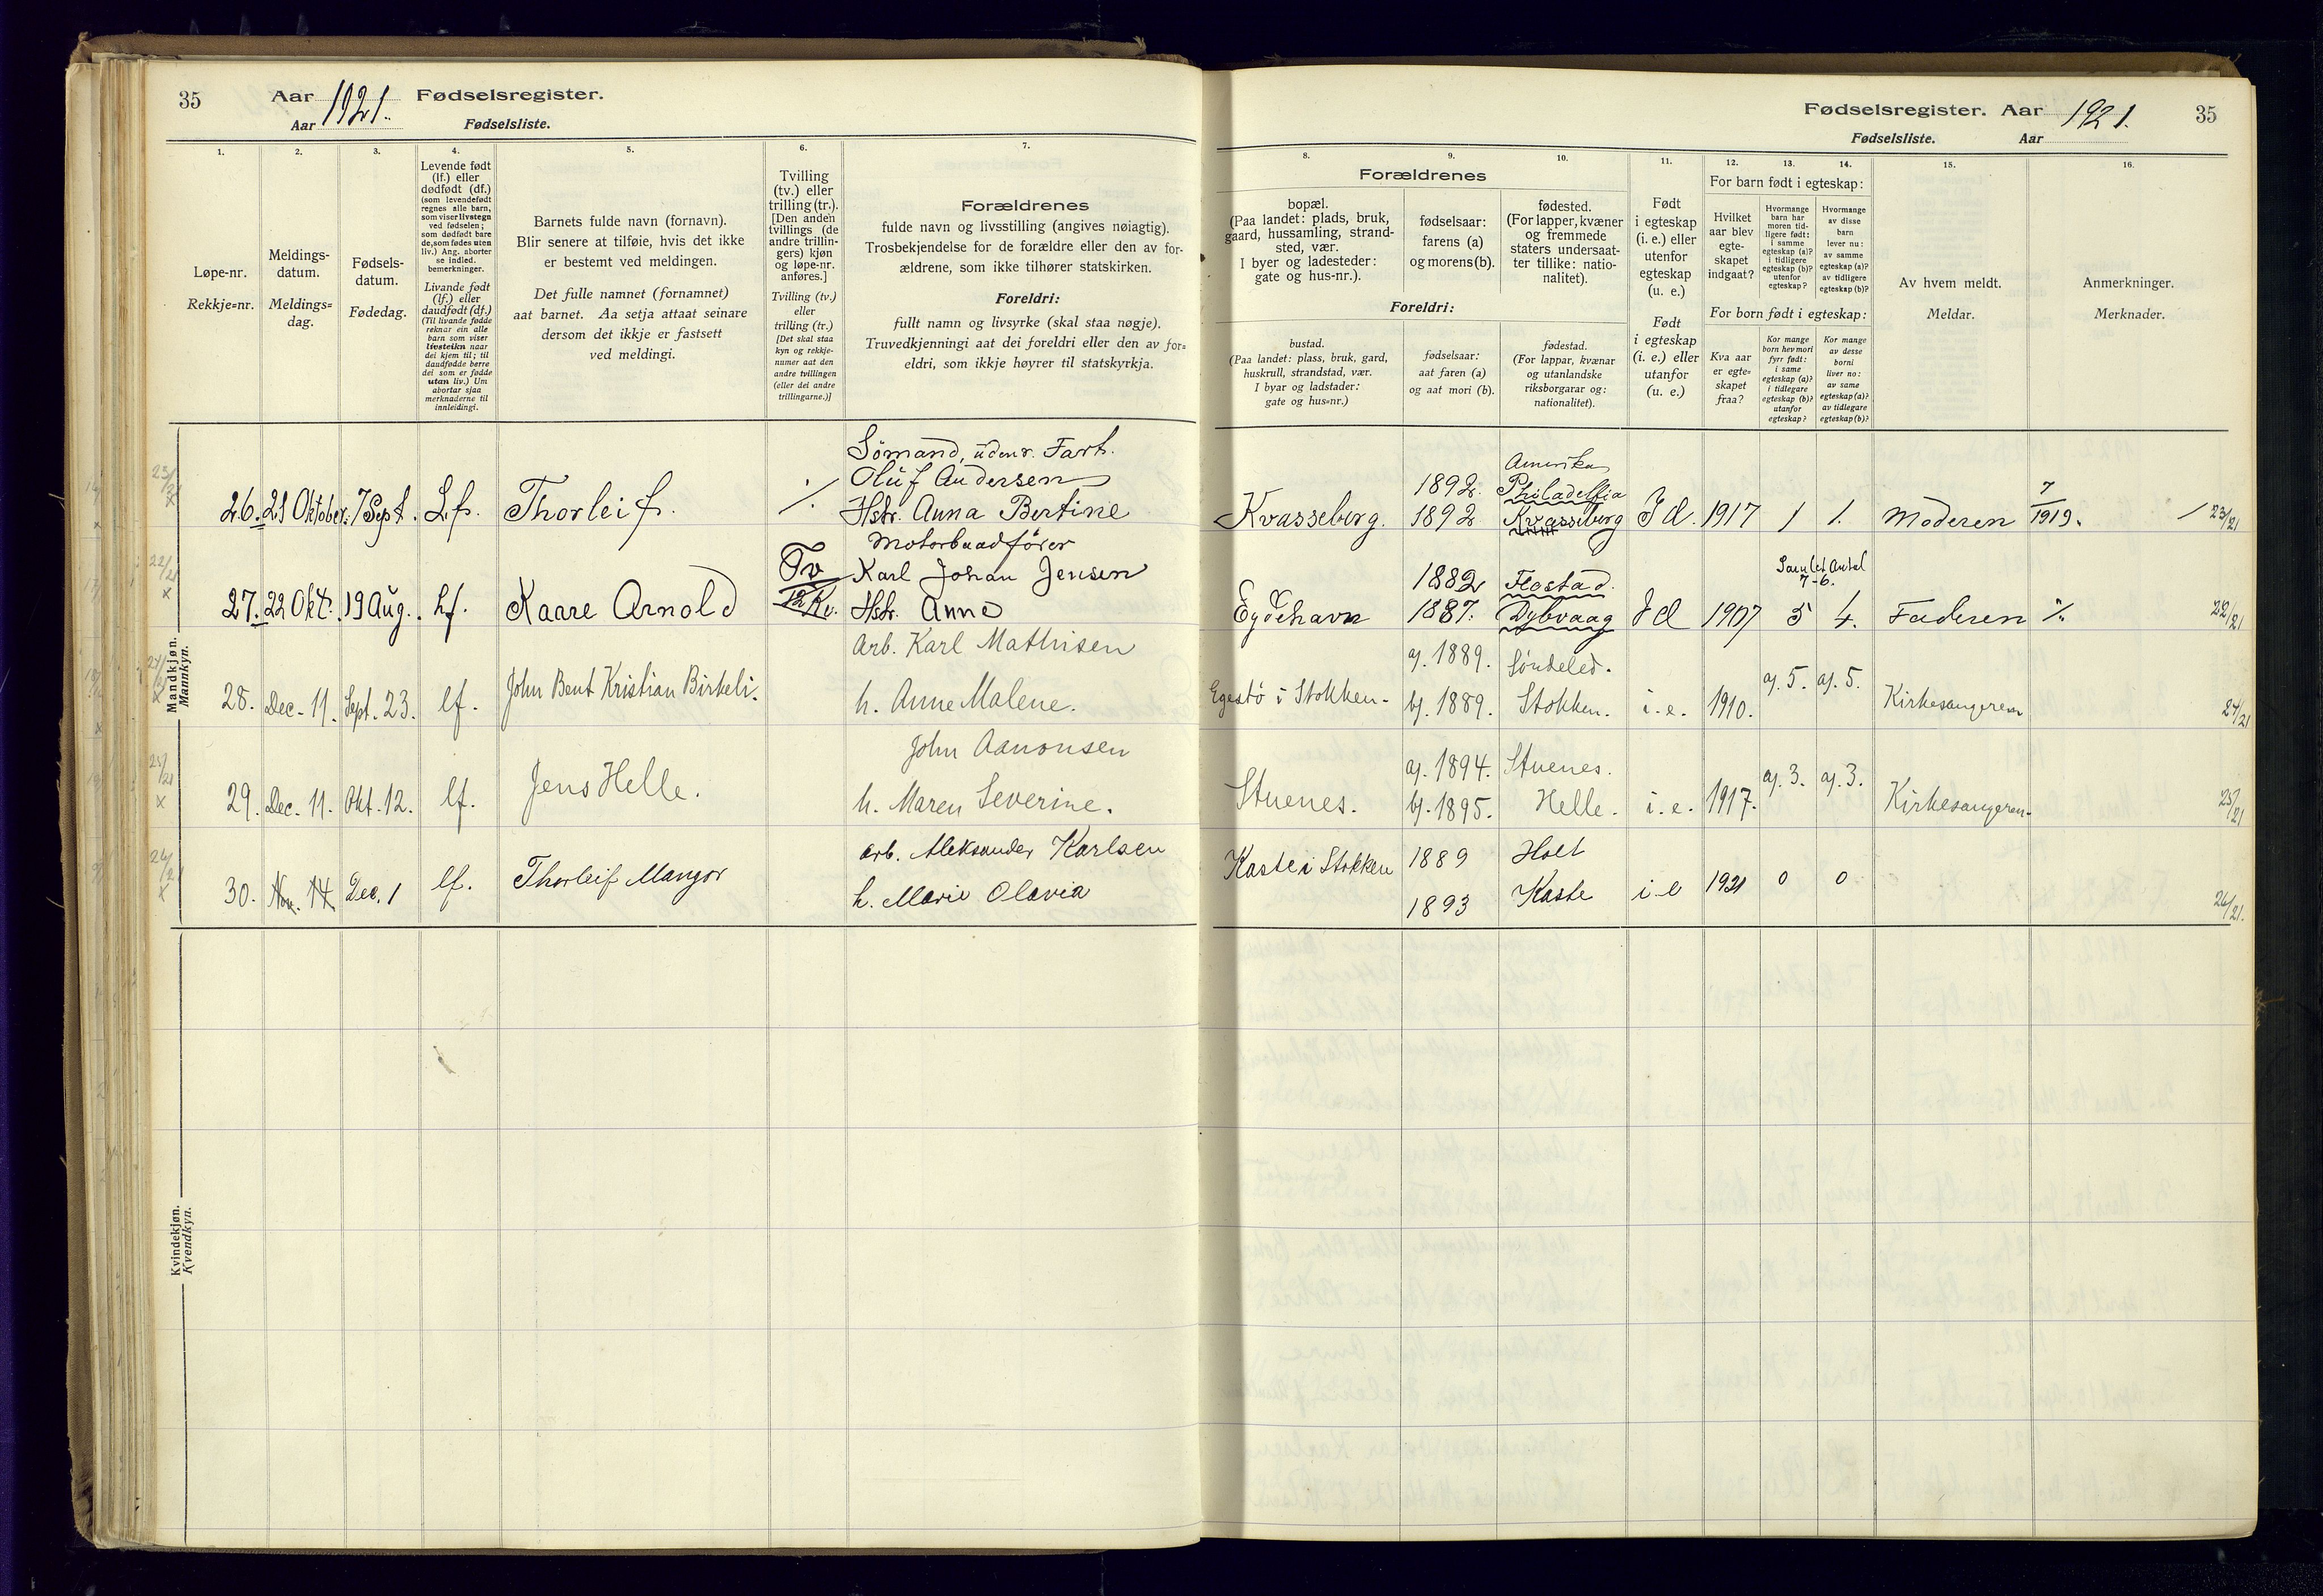 35 Aar 1921. Fødselsregister.
Aar Fødselsliste.
1. 2. 3. 4. 5. 6. 7.
Løpe-nr.
Rekkje=nr.
Meldings-
datum.
Meldings=
dag.
Fødsels-
datum.
Fødedag.
Levende født
(lf.) eller
dødfødt (df.)
(som levendefødt
regnes alle barn,
som viser livstegn
ved fødselen;
som dødfødt bare
de, som fødes uten
liv.) Ang. aborter
se indled.
bemerkninger.
Livande fødd
(lf.) eller
daudfødd (df.)
(Til livande fødde
reknar ein alle
barn som viser
livsteikn naar
dei kjem til; til
daudfødde berre
dei som er fødde
utan liv.) Um
abortar sjaa
merknaderne til
innleidingi.
Barnets fulde navn (fornavn).
Blir senere at tilføie, hvis det ikke
er bestemt ved meldingen.
Det fulle namnet (fornamnet)
aat barnet. Aa setja attaat seinare
dersom det ikkje er fastsett
ved meldingi.
Tvilling
(tv.) eller
trilling (tr.).
[Den anden
tvillings (de
andre trillin-
gers) kjøn
og løpe-nr.
anføres.]
Tvilling (tv.)
eller
trilling (tr.)
[Det skal staa
kyn og rekkje-
numer aat den
andre tvillingen
(eller dei andre
trillingarne.)]
Forældrenes
fulde navn og livsstilling (angives nøiagtig).
Trosbekjendelse for de forældre eller den av for-
ældrene, som ikke tilhører statskirken.
Foreldri:
fullt namn og livsyrke (skal staa nøgje).
Truvedkjenningi aat dei foreldri eller den av for=
eldri, som ikkje høyrer til statskyrkja.
Mandkjøn.
Mannkyn.
Sømand, udenr. Fart.
Oluf Andersen
26. 21 Oktober. 7 Sept. Lf. Thorleif. ./. Hstr. Anna Bertine
Motorbaadfører
Tv Karl Johan Jensen
27. 22 Okt. 19 Aug. Lf. Kaare Arnold 12 Kv. Hstr. Anne
Arb. Karl Mathisen
28. Dec. 11. Sept. 23. lf. John Bent Kristian Birkeli. h. Anne Malene.
John Aanonsen
29. Dec. 11. Okt. 12. lf. Jens Helle. h. Maren Severine.
arb. Aleksander Karlsen
30. Nov. 14. Dec. 1 lf. Thorleif Mangor h. Marie Olavia
Kvindekjøn.
Kvendkyn.
Fødselsregister. Aar 1921. 35
Fødselsliste. Aar
8. 9. 10. 11. 12. 13. 14. 15. 16.
Forældrenes
bopæl.
(Paa landet: plads, bruk,
gaard, hussamling, strand-
sted, vær.
I byer og ladesteder:
gate og hus-nr.).
fødselsaar:
farens (a)
og morens (b).
fødested.
(For lapper, kvæner
og fremmede
staters undersaat-
ter tillike: natio-
nalitet).
Foreldri:
bustad.
(Paa landet: plass, bruk, gard,
huskrull, strandstad, vær.
I byar og ladstader:
gate og hus=nr.)
fødselsaar:
aat faren (a)
og aat mori (b).
fødestad.
(For lappar, kvænar
og utanlandske
riksborgarar og:
nationalitet).
Født
i egteskap
(i. e.) eller
utenfor
egteskap
(u. e.)
Født
i egteskap
(i. e.) eller
utanfor
(u. e.)
For barn født i egteskap:
Hvilket
aar blev
egte-
skapet
indgaat?
Hvormange
barn har
moren tid-
ligere født:
i samme
egteskap (a)?
i tidligere
egteskap (b)?
utenfor
egteskap?
Hvormange
av disse
barn
lever nu:
av samme
egteskap (a)?
av tidligere
egteskap (b)?
For born født i egteskap:
Kva aar
er egte=
skapet
fraa?
Kor mange
born hev mori
fyrr født:
i same
egteskap (a)?
i tidlegare
egteskap (b)?
utanfor
egteskap?
Kor mange
av desse
borni
liver no:
av same
egteskap (a)?
av tidlegare
egteskap (b)?
Av hvem meldt.
Meldar.
Anmerkninger.
Merknader.
Amerika
1892. Philadelfia
Kvasseberg. 1892 Kvasseberg J d. 1917 1 1. Moderen 7/1919. 23/21
Samlet Antal
7-6.
1882 Flostad.
Eydehavn 1887. Dybvaag J d 1907 5 4. Faderen ./. 22/21
a). 1889. Søndeled.
Egestø i Stokken. b). 1889. Stokken. i. e. 1910. a). 5. a). 5. Kirkesangeren 24/21
a). 1894. Stuenes.
Stuenes. b). 1895. Helle. i. e. 1917. a). 3. a). 3. Kirkesangeren. 25/21
Kaste i Stokken 1889 Holt
1893 Kaste i e 1921 0 0 26/21.